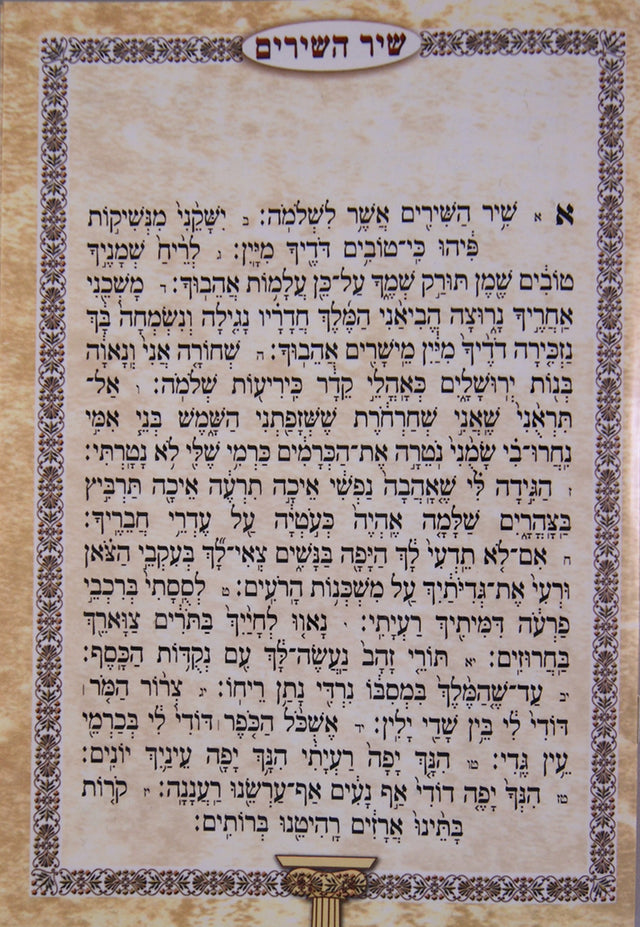 שיר השירים
א א שִׁ֥יר הַשִּׁירִ֖ים אֲשֶׁ֥ר לִשְׁלֹמֹֽה׃ ב יִשָּׁקֵ֙נִי֙ מִנְּשִׁיק֣וֹת
פִּ֔יהוּ כִּֽי־טוֹבִ֥ים דֹּדֶ֖יךָ מִיָּֽיִן׃ ג לְרֵ֙יחַ֙ שְׁמָנֶ֣יךָ
טוֹבִ֔ים שֶׁ֖מֶן תּוּרַ֣ק שְׁמֶ֑ךָ עַל־כֵּ֖ן עֲלָמ֥וֹת אֲהֵבֽוּךָ׃ ד מׇשְׁכֵ֖נִי
אַחֲרֶ֣יךָ נָּר֑וּצָה הֱבִיאַ֨נִי הַמֶּ֜לֶךְ חֲדָרָ֗יו נָגִ֤ילָה וְנִשְׂמְחָה֙ בָּ֔ךְ
נַזְכִּ֤ירָה דֹדֶ֙יךָ֙ מִיַּ֔יִן מֵישָׁרִ֖ים אֲהֵבֽוּךָ׃ ה שְׁחוֹרָ֤ה אֲנִי֙ וְֽנָאוָ֔ה
בְּנ֖וֹת יְרוּשָׁלָ֑͏ִם כְּאׇהֳלֵ֣י קֵדָ֔ר כִּירִיע֖וֹת שְׁלֹמֹֽה׃ ו אַל־
תִּרְאֻ֙נִי֙ שֶׁאֲנִ֣י שְׁחַרְחֹ֔רֶת שֶׁשְּׁזָפַ֖תְנִי הַשָּׁ֑מֶשׁ בְּנֵ֧י אִמִּ֣י
נִֽחֲרוּ־בִ֗י שָׂמֻ֙נִי֙ נֹטֵרָ֣ה אֶת־הַכְּרָמִ֔ים כַּרְמִ֥י שֶׁלִּ֖י לֹ֥א נָטָֽרְתִּי׃
ז הַגִּ֣ידָה לִּ֗י שֶׁ֤אָהֲבָה֙ נַפְשִׁ֔י אֵיכָ֣ה תִרְעֶ֔ה אֵיכָ֖ה תַּרְבִּ֣יץ
בַּֽצׇּהֳרָ֑יִם שַׁלָּמָ֤ה אֶֽהְיֶה֙ כְּעֹ֣טְיָ֔ה עַ֖ל עֶדְרֵ֥י חֲבֵרֶֽיךָ׃
ח אִם־לֹ֤א תֵדְעִי֙ לָ֔ךְ הַיָּפָ֖ה בַּנָּשִׁ֑ים צְֽאִי־לָ֞ךְ בְּעִקְבֵ֣י הַצֹּ֗אן
וּרְעִי֙ אֶת־גְּדִיֹּתַ֔יִךְ עַ֖ל מִשְׁכְּנ֥וֹת הָרֹעִֽים׃ ט לְסֻסָתִי֙ בְּרִכְבֵ֣י
פַרְעֹ֔ה דִּמִּיתִ֖יךְ רַעְיָתִֽי׃ י נָאו֤וּ לְחָיַ֙יִךְ֙ בַּתֹּרִ֔ים צַוָּארֵ֖ךְ
בַּחֲרוּזִֽים׃ יא תּוֹרֵ֤י זָהָב֙ נַעֲשֶׂה־לָּ֔ךְ עִ֖ם נְקֻדּ֥וֹת הַכָּֽסֶף׃
יב עַד־שֶׁ֤הַמֶּ֙לֶךְ֙ בִּמְסִבּ֔וֹ נִרְדִּ֖י נָתַ֥ן רֵיחֽוֹ׃ יג צְר֨וֹר הַמֹּ֤ר׀
דּוֹדִי֙ לִ֔י בֵּ֥ין שָׁדַ֖י יָלִֽין׃ יד אֶשְׁכֹּ֨ל הַכֹּ֤פֶר׀ דּוֹדִי֙ לִ֔י בְּכַרְמֵ֖י
עֵ֥ין גֶּֽדִי׃ טו הִנָּ֤ךְ יָפָה֙ רַעְיָתִ֔י הִנָּ֥ךְ יָפָ֖ה עֵינַ֥יִךְ יוֹנִֽים׃
טז הִנְּךָ֨ יָפֶ֤ה דוֹדִי֙ אַ֣ף נָעִ֔ים אַף־עַרְשֵׂ֖נוּ רַֽעֲנָנָֽה׃ יז קֹר֤וֹת
בָּתֵּ֙ינוּ֙ אֲרָזִ֔ים רָהִיטֵ֖נוּ בְּרוֹתִֽים׃